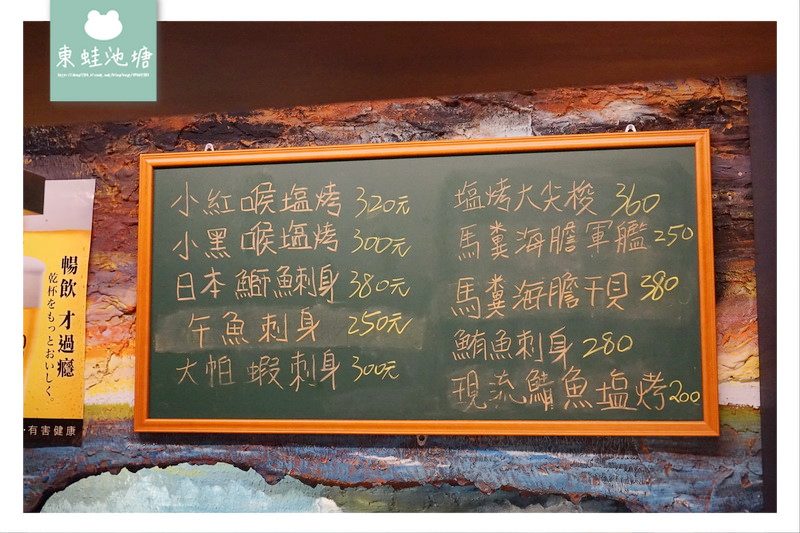 東蛙池塘
小紅喉塩烤 320元
小黑喉塩烤 300元
日本鰤魚刺身 380元
午魚刺身 250元
大帕蝦刺身 300元
塩烤大尖梭 360
馬糞海膽軍艦 250
馬糞海膽干貝 380
鮪魚刺身 280
現流鯖魚塩烤 200
暢飲才過癮
乾杯をもっとおいしく。
有害健康